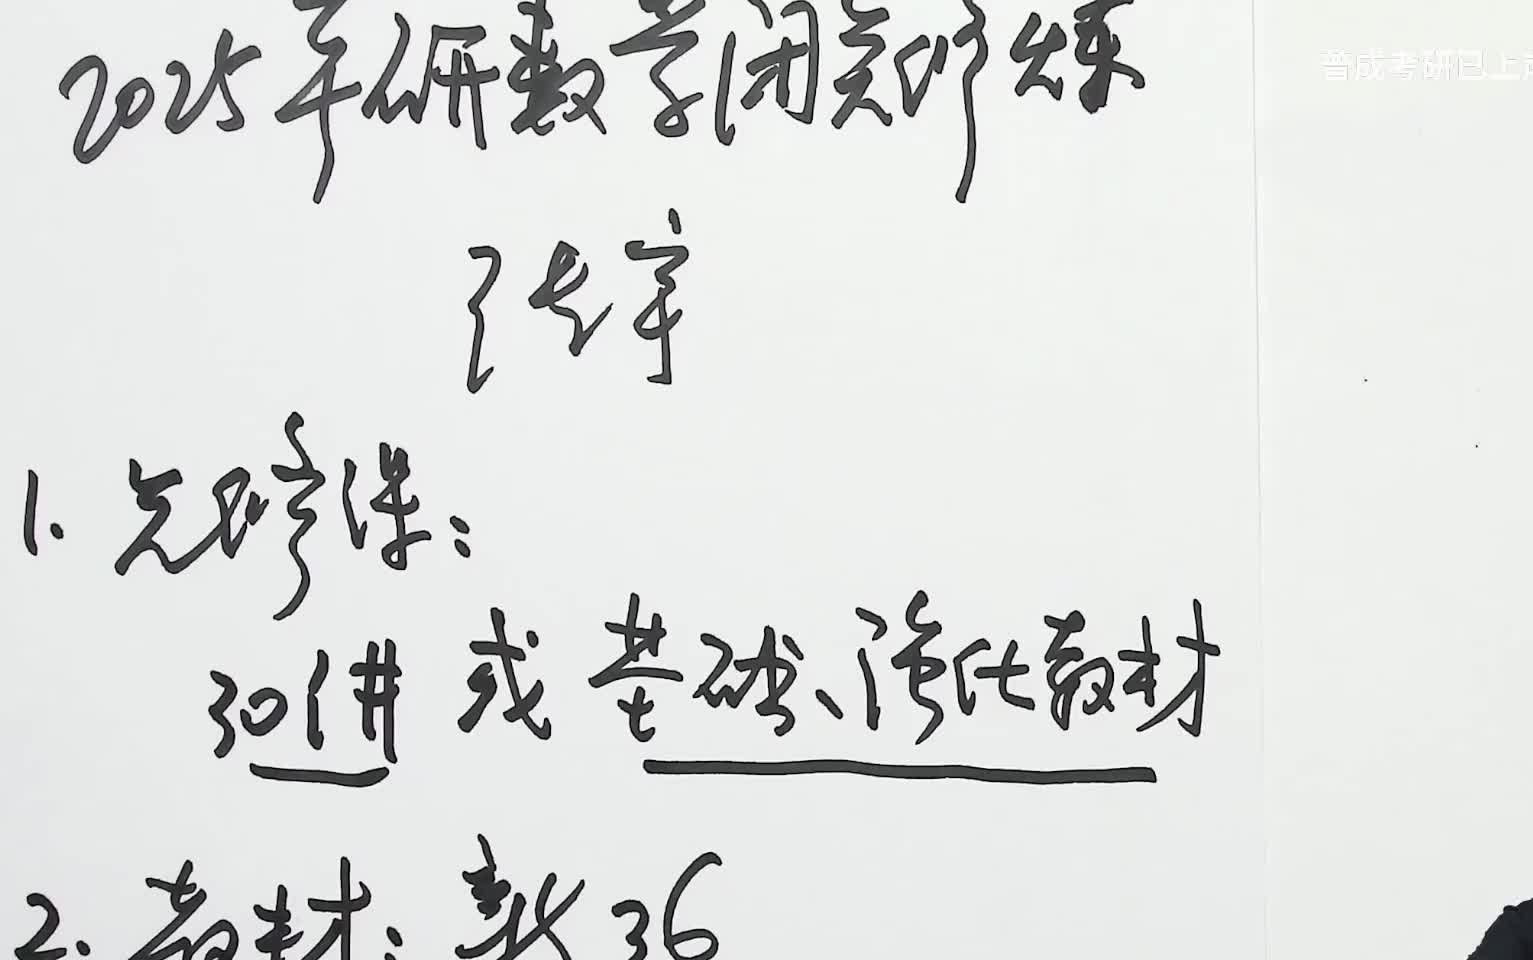 2025年研数学闭关修炼
普成考研已上
张宇
1. 先修课:
30讲 或 基础、强化教材
2. 教材: 新 36